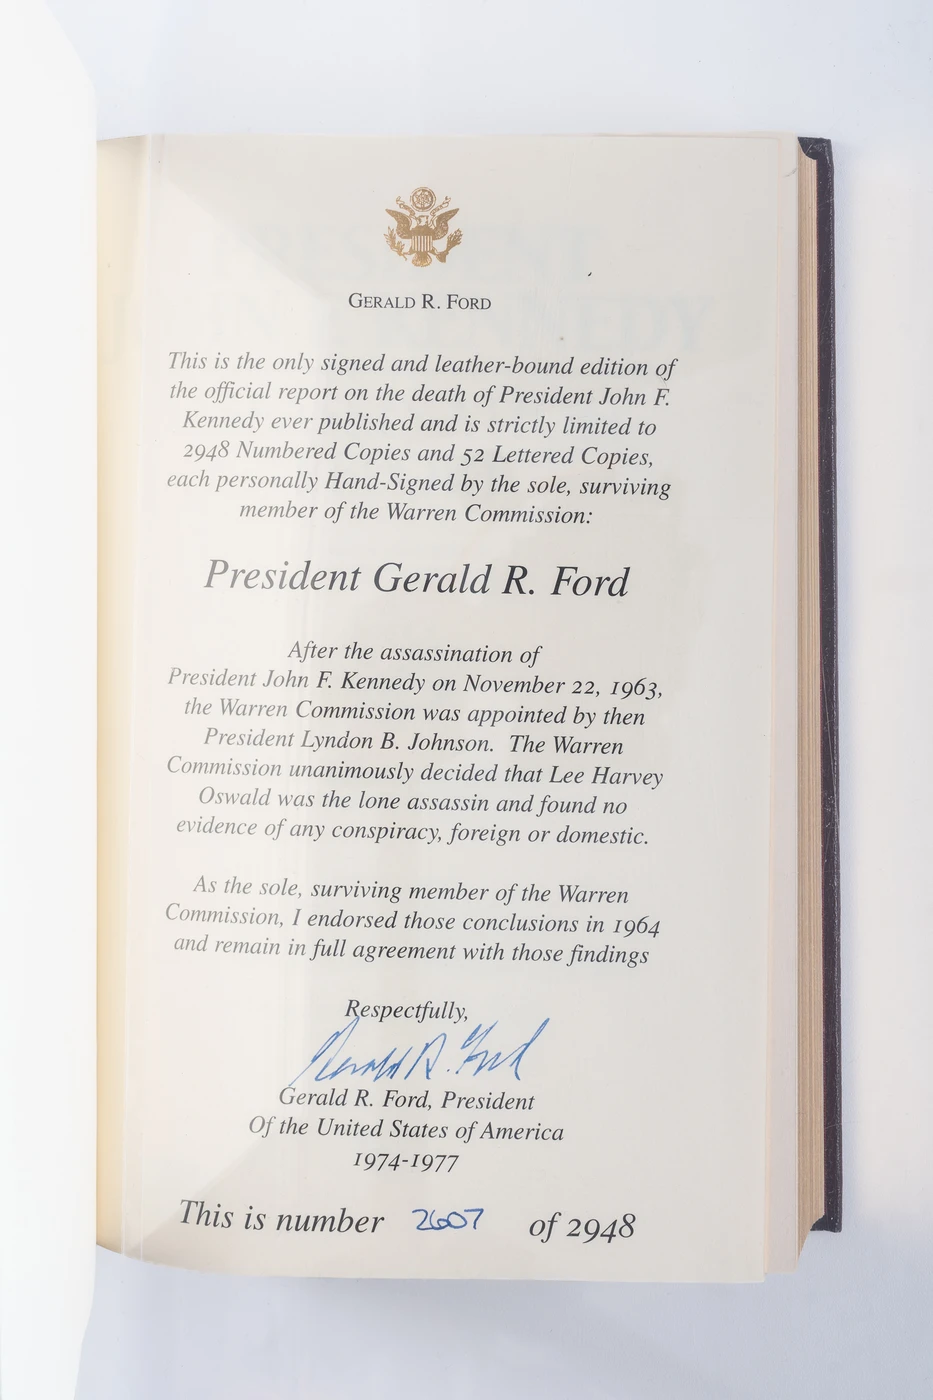 GERALD R. FORD
This is the only signed and leather-bound edition of
the official report on the death of President John F.
Kennedy ever published and is strictly limited to
2948 Numbered Copies and 52 Lettered Copies,
each personally Hand-Signed by the sole, surviving
member of the Warren Commission:
President Gerald R. Ford
After the assassination of
President John F. Kennedy on November 22, 1963,
the Warren Commission was appointed by then
President Lyndon B. Johnson. The Warren
Commission unanimously decided that Lee Harvey
Oswald was the lone assassin and found no
evidence of any conspiracy, foreign or domestic.
As the sole, surviving member of the Warren
Commission, I endorsed those conclusions in 1964
and remain in full agreement with those findings
Respectfully,
Gerald R. Ford
Gerald R. Ford, President
Of the United States of America
1974-1977
This is number 2607 of 2948